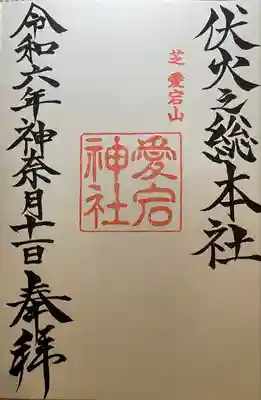 伏火之総本社
芝 愛宕山
愛宕神社
令和六年神奈月十一日
奉拝